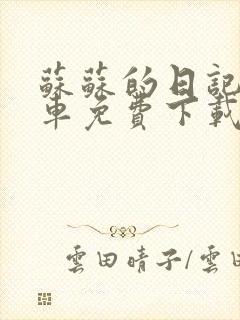 蘇蘇的日記
車免費下載
雲田晴子/雲田